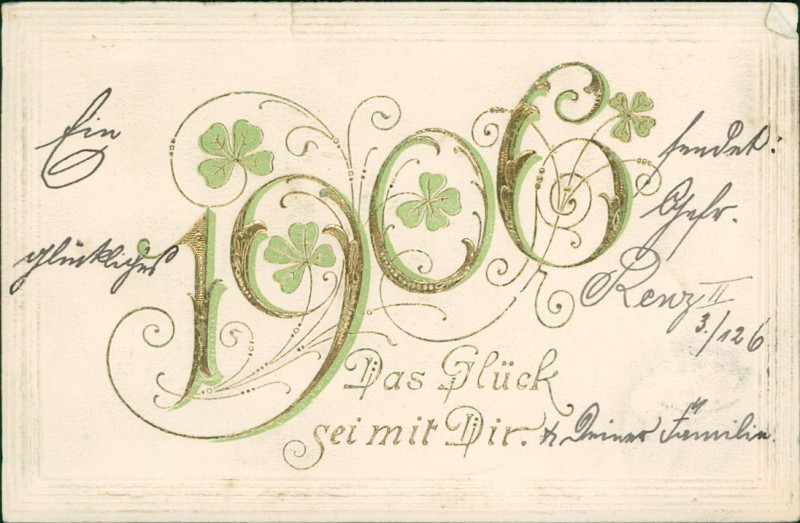 Ein
glückliches
1906
sendet:
Gefr.
Renz II
3./126
Das Glück
sei mit Dir. & Deiner Familie.